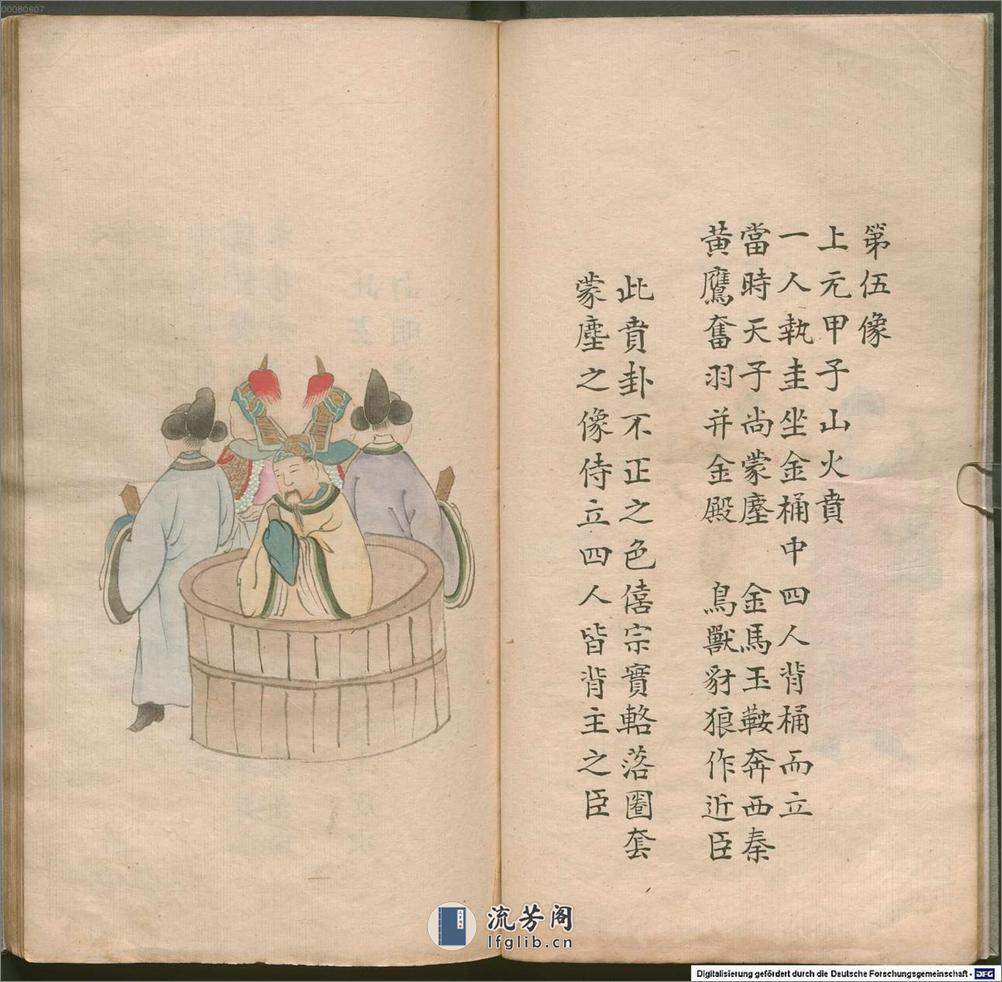 第伍像
上元甲子山火賁
一人執圭坐金桶中四人背桶而立
當時天子尚蒙塵 金馬玉鞍奔西秦
黃鷹奮羽并金殿 鳥獸豺狼作近臣
此賁卦不正之色僖宗實輅落圈套
蒙塵之像侍立四人皆背主之臣
00080607
流芳阁
lfglib.cn
Digitalisierung gefördert durch die Deutsche Forschungsgemeinschaft - DFG